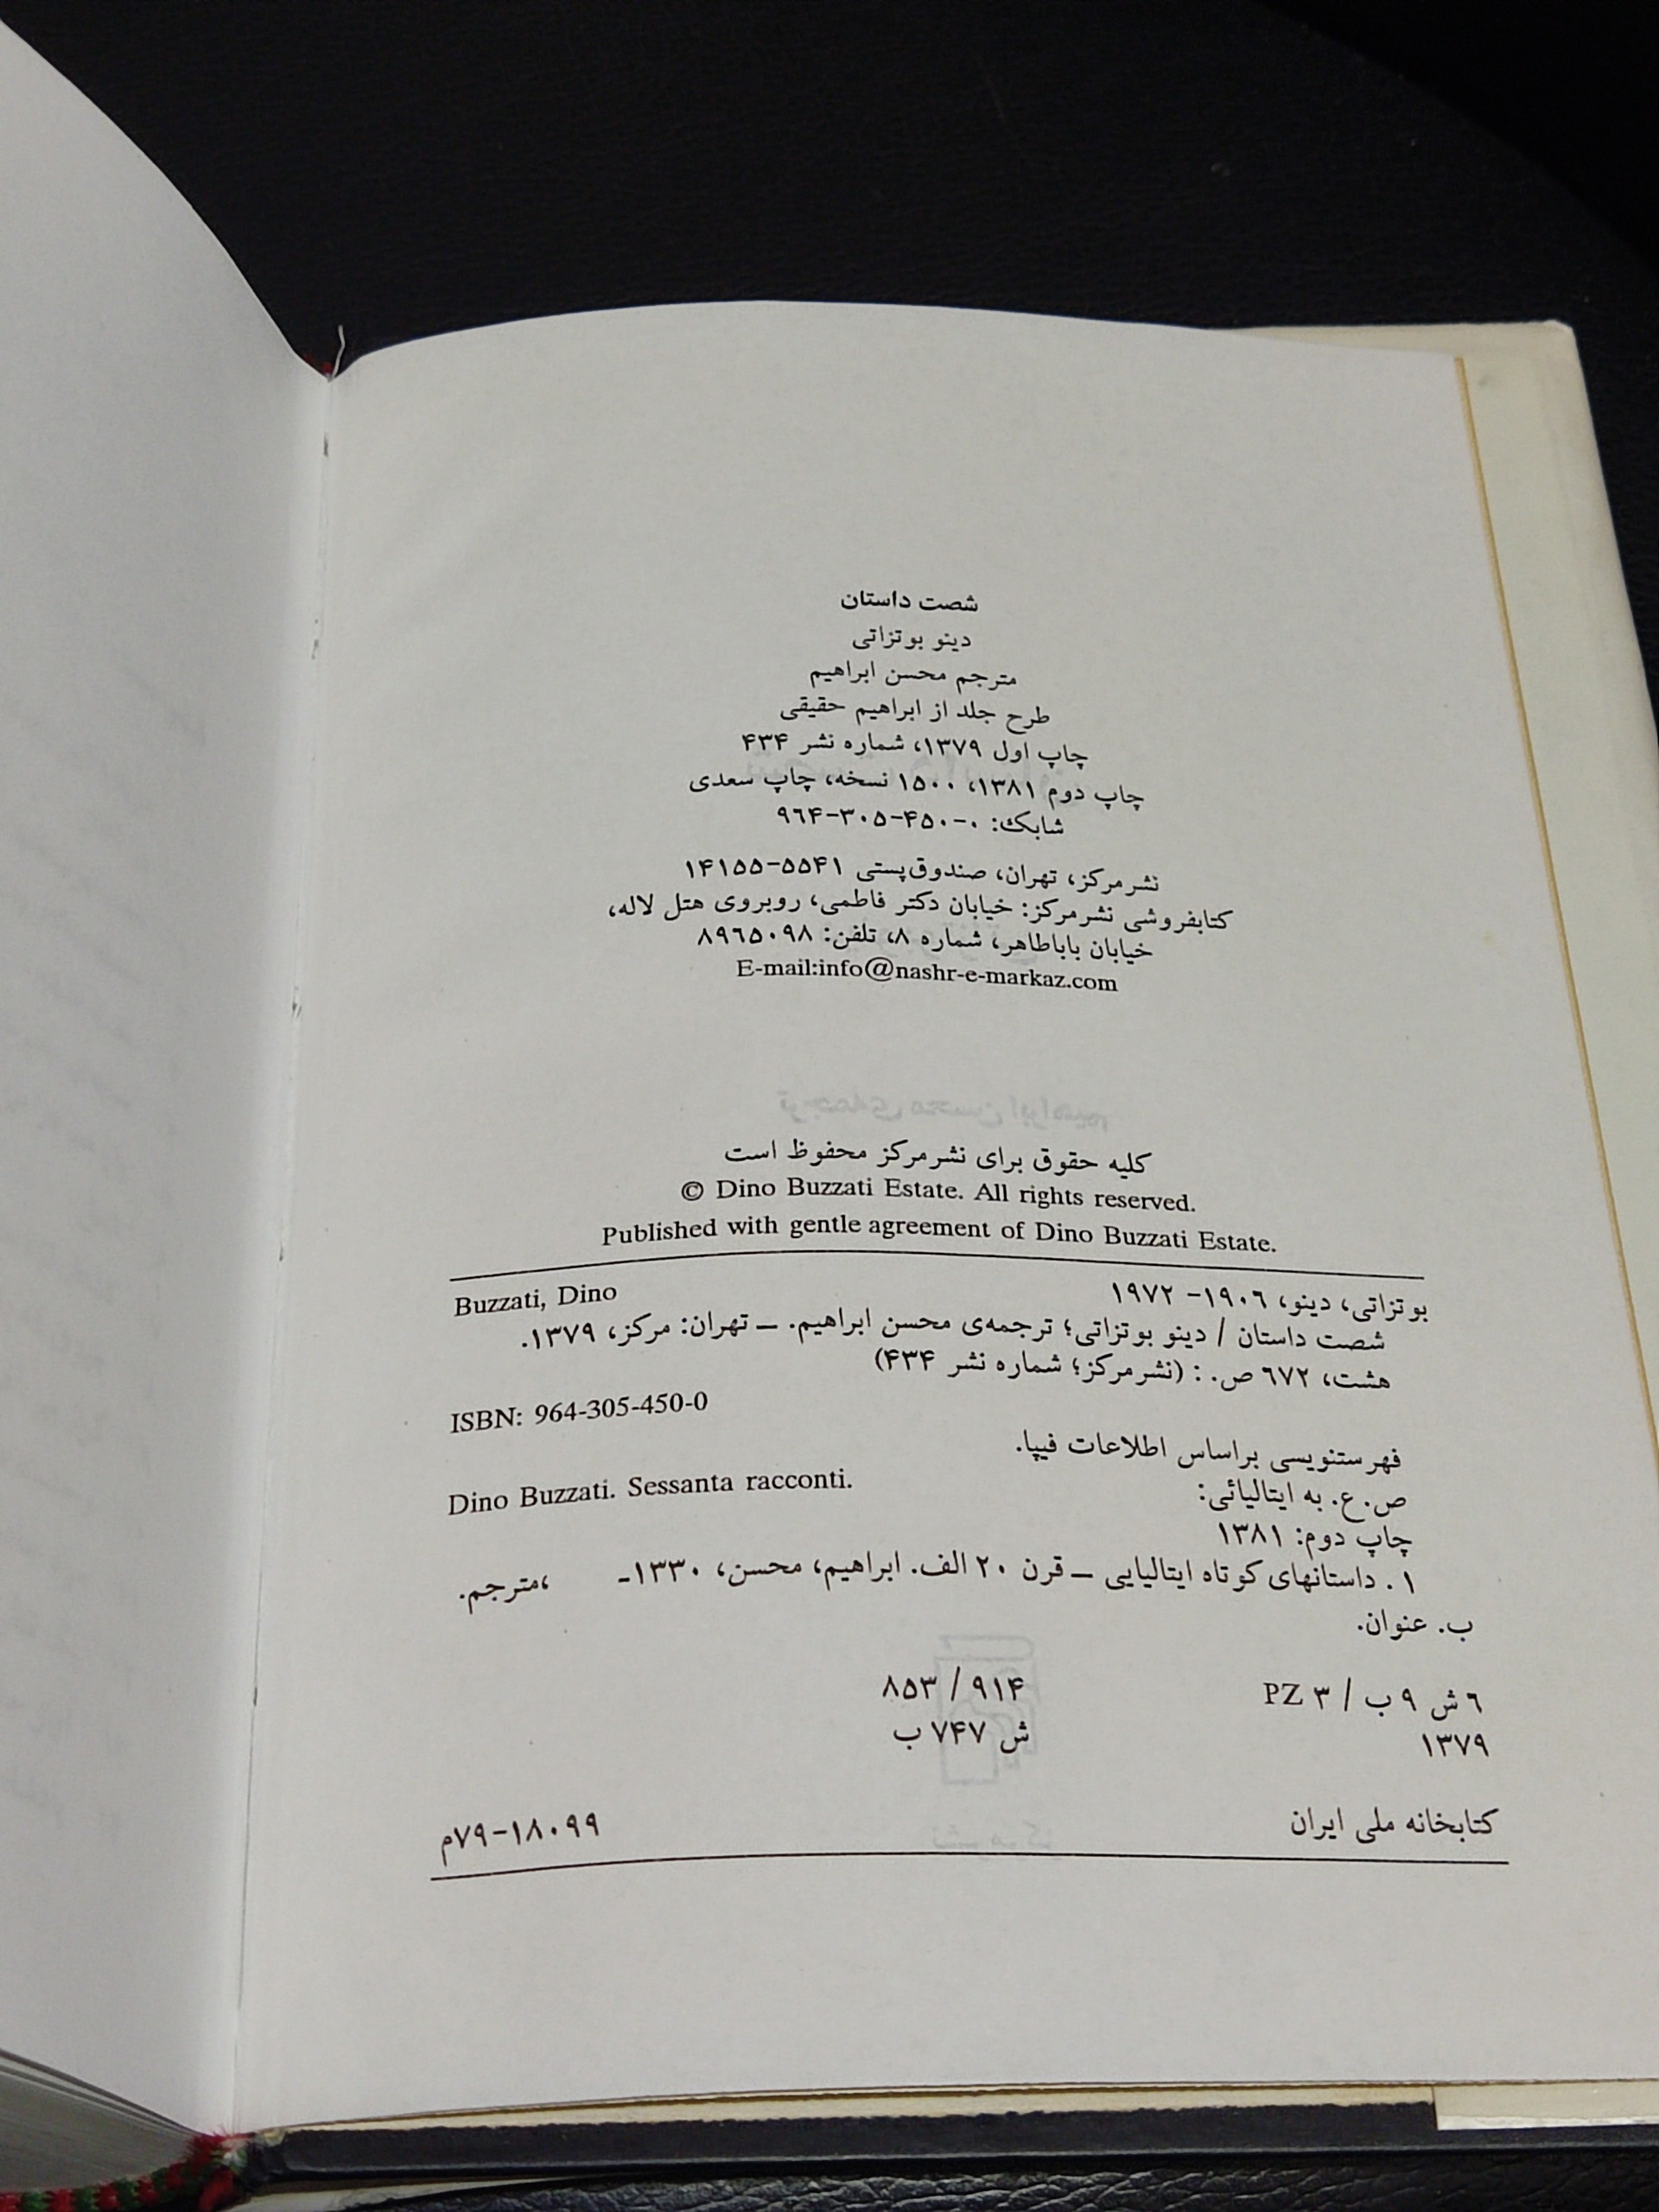 شصت داستان
دینو بوتزاتی
مترجم محسن ابراهیم
طرح جلد از ابراهیم حقیقی
چاپ اول ۱۳۷۹، شماره نشر ۴۳۴
چاپ دوم ۱۳۸۱، ۱۵۰۰ نسخه، چاپ سعدی
شابک: ۰-۴۵۰-۳۰۵-۹۶۴
نشرمرکز، تهران، صندوق‌پستی ۵۵۴۱-۱۴۱۵۵
کتابفروشی نشرمرکز: خیابان دکتر فاطمی، روبروی هتل لاله،
خیابان باباطاهر، شماره ۸، تلفن: ۸۹۶۵۰۹۸
E-mail:info@nashr-e-markaz.com
ترجمه‌ی محسن ابراهیم
کلیه حقوق برای نشرمرکز محفوظ است
© Dino Buzzati Estate. All rights reserved.
Published with gentle agreement of Dino Buzzati Estate.
بوتزاتی، دینو، ۱۹۰۶- ۱۹۷۲ Buzzati, Dino
شصت داستان / دینو بوتزاتی؛ ترجمه‌ی محسن ابراهیم. ـ تهران: مرکز، ۱۳۷۹.
هشت، ۶۷۲ ص. : (نشرمرکز؛ شماره نشر ۴۳۴)
ISBN: 964-305-450-0
فهرستنویسی براساس اطلاعات فیپا.
ص.ع. به ایتالیائی: Dino Buzzati. Sessanta racconti.
چاپ دوم: ۱۳۸۱
۱. داستانهای کوتاه ایتالیایی ـ قرن ۲۰ الف. ابراهیم، محسن، ۱۳۳۰ـ ،مترجم.
ب. عنوان.
۶ ش ۹ ب / ۳ PZ ۸۵۳ / ۹۱۴
۱۳۷۹ ش ۷۴۷ ب
کتابخانه ملی ایران ۱۸۰۹۹-۷۹م
نشرمرکز